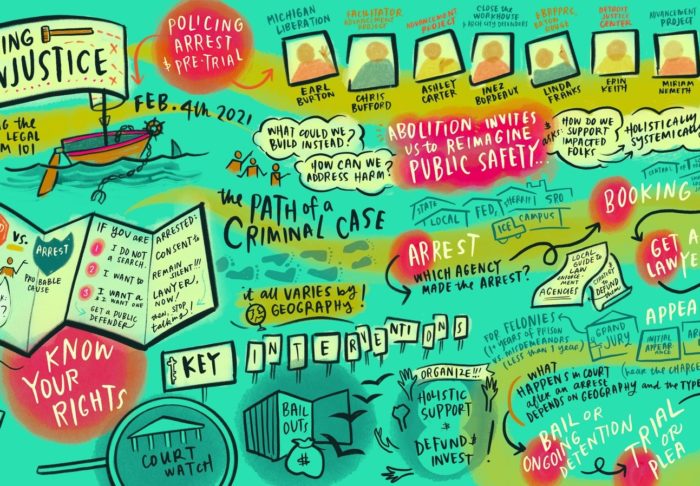 ING
NJUSTICE
ING THE
LEGAL
M 101
FEB. 4TH 2021
POLICING
ARREST
& PRE-TRIAL
MICHIGAN
LIBERATION
EARL
BURTON
FACILITATOR,
ADVANCEMENT
PROJECT
CHRIS
BUFFORD
ADVANCEMENT
PROJECT
ASHLEY
CARTER
CLOSE THE
WORKHOUSE
& ARCH CITY DEFENDERS
INEZ
BORDEAUX
EBRPPRC,
BATON
ROUGE
LINDA
FRANKS
DETROIT
JUSTICE
CENTER
ERIN
KEITH
ADVANCEMENT
PROJECT
MIRIAM
NEMETH
WHAT COULD WE
BUILD INSTEAD?
HOW CAN WE
ADDRESS HARM?
ABOLITION INVITES
US TO REIMAGINE
PUBLIC SAFETY...
& asks:
HOW DO WE
SUPPORT
IMPACTED
FOLKS
HOLISTICALLY
SYSTEMICAL
the PATH of a
CRIMINAL CASE
it all VARIES by
GEOGRAPHY!
STATE
LOCAL
FED,
ICE
CAMPUS
ARREST
WHICH AGENCY
MADE THE ARREST?
LOCAL
GUIDE TO
LAW
ENFORCEMENT
AGENCIES
BOOKING
GET A
LAWYE
VS.
ARREST
PROBABLE
CAUSE
IF YOU ARE
ARRESTED:
1 I DO NOT
CONSENT to
A SEARCH.
2 I WANT to
REMAIN
SILENT!!!
3 I WANT A
LAWYER,
NOW!
GET A PUBLIC
DEFENDER
then, STOP
talking!
KNOW
YOUR
RIGHTS
KEY INTERVENTIONS
COURT
WATCH
BAIL
OUTS
$
ORGANIZE!!!
HOLISTIC
SUPPORT
&
DEFUND &
INVEST
FOR FELONIES
(1+ YEARS of PRISON
vs. MISDEMEANORS
(LESS than 1 year)
GRAND
JURY
INITIAL
APPEAR
ANCE
APPEA
(hear the CHARGE
WHAT
HAPPENS in COURT
after an ARREST
DEPENDS on GEOGRAPHY and the TYPE
BAIL OR
ONGOING
DETENTION
TRIAL
OR
PLEA